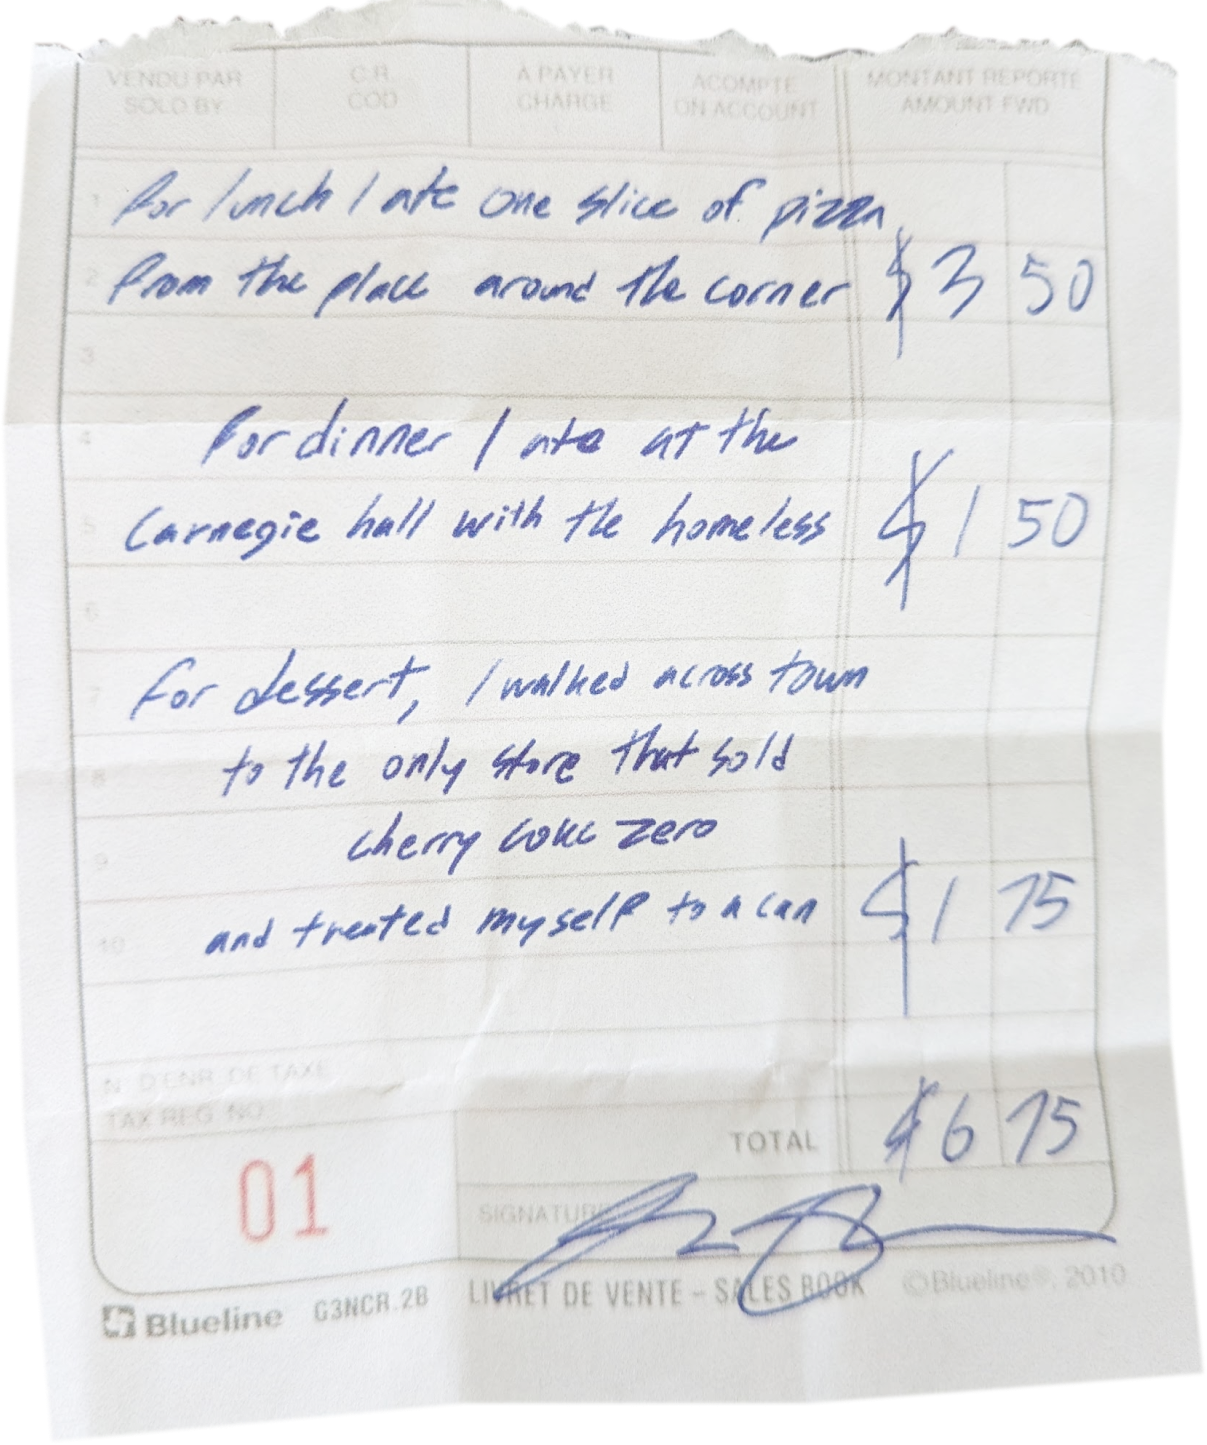 VENDU PAR SOLD BY C.R. COD À PAYER CHARGE ACOMPTE ON ACCOUNT MONTANT REPORTÉ AMOUNT FWD
1 For lunch I ate one slice of pizza
2 from the place around the corner $3 50
3
4 For dinner I ate at the
5 Carnegie hall with the homeless $1 50
6
7 For dessert, I walked across town
8 to the only store that sold
9 cherry coke zero
10 and treated myself to a can $1 75
N° D'ENR. DE TAXE
TAX REG. NO.
TOTAL $6 75
01
SIGNATURE
Blueline G3NCR.2B LIVRET DE VENTE – SALES BOOK ©Blueline®, 2010